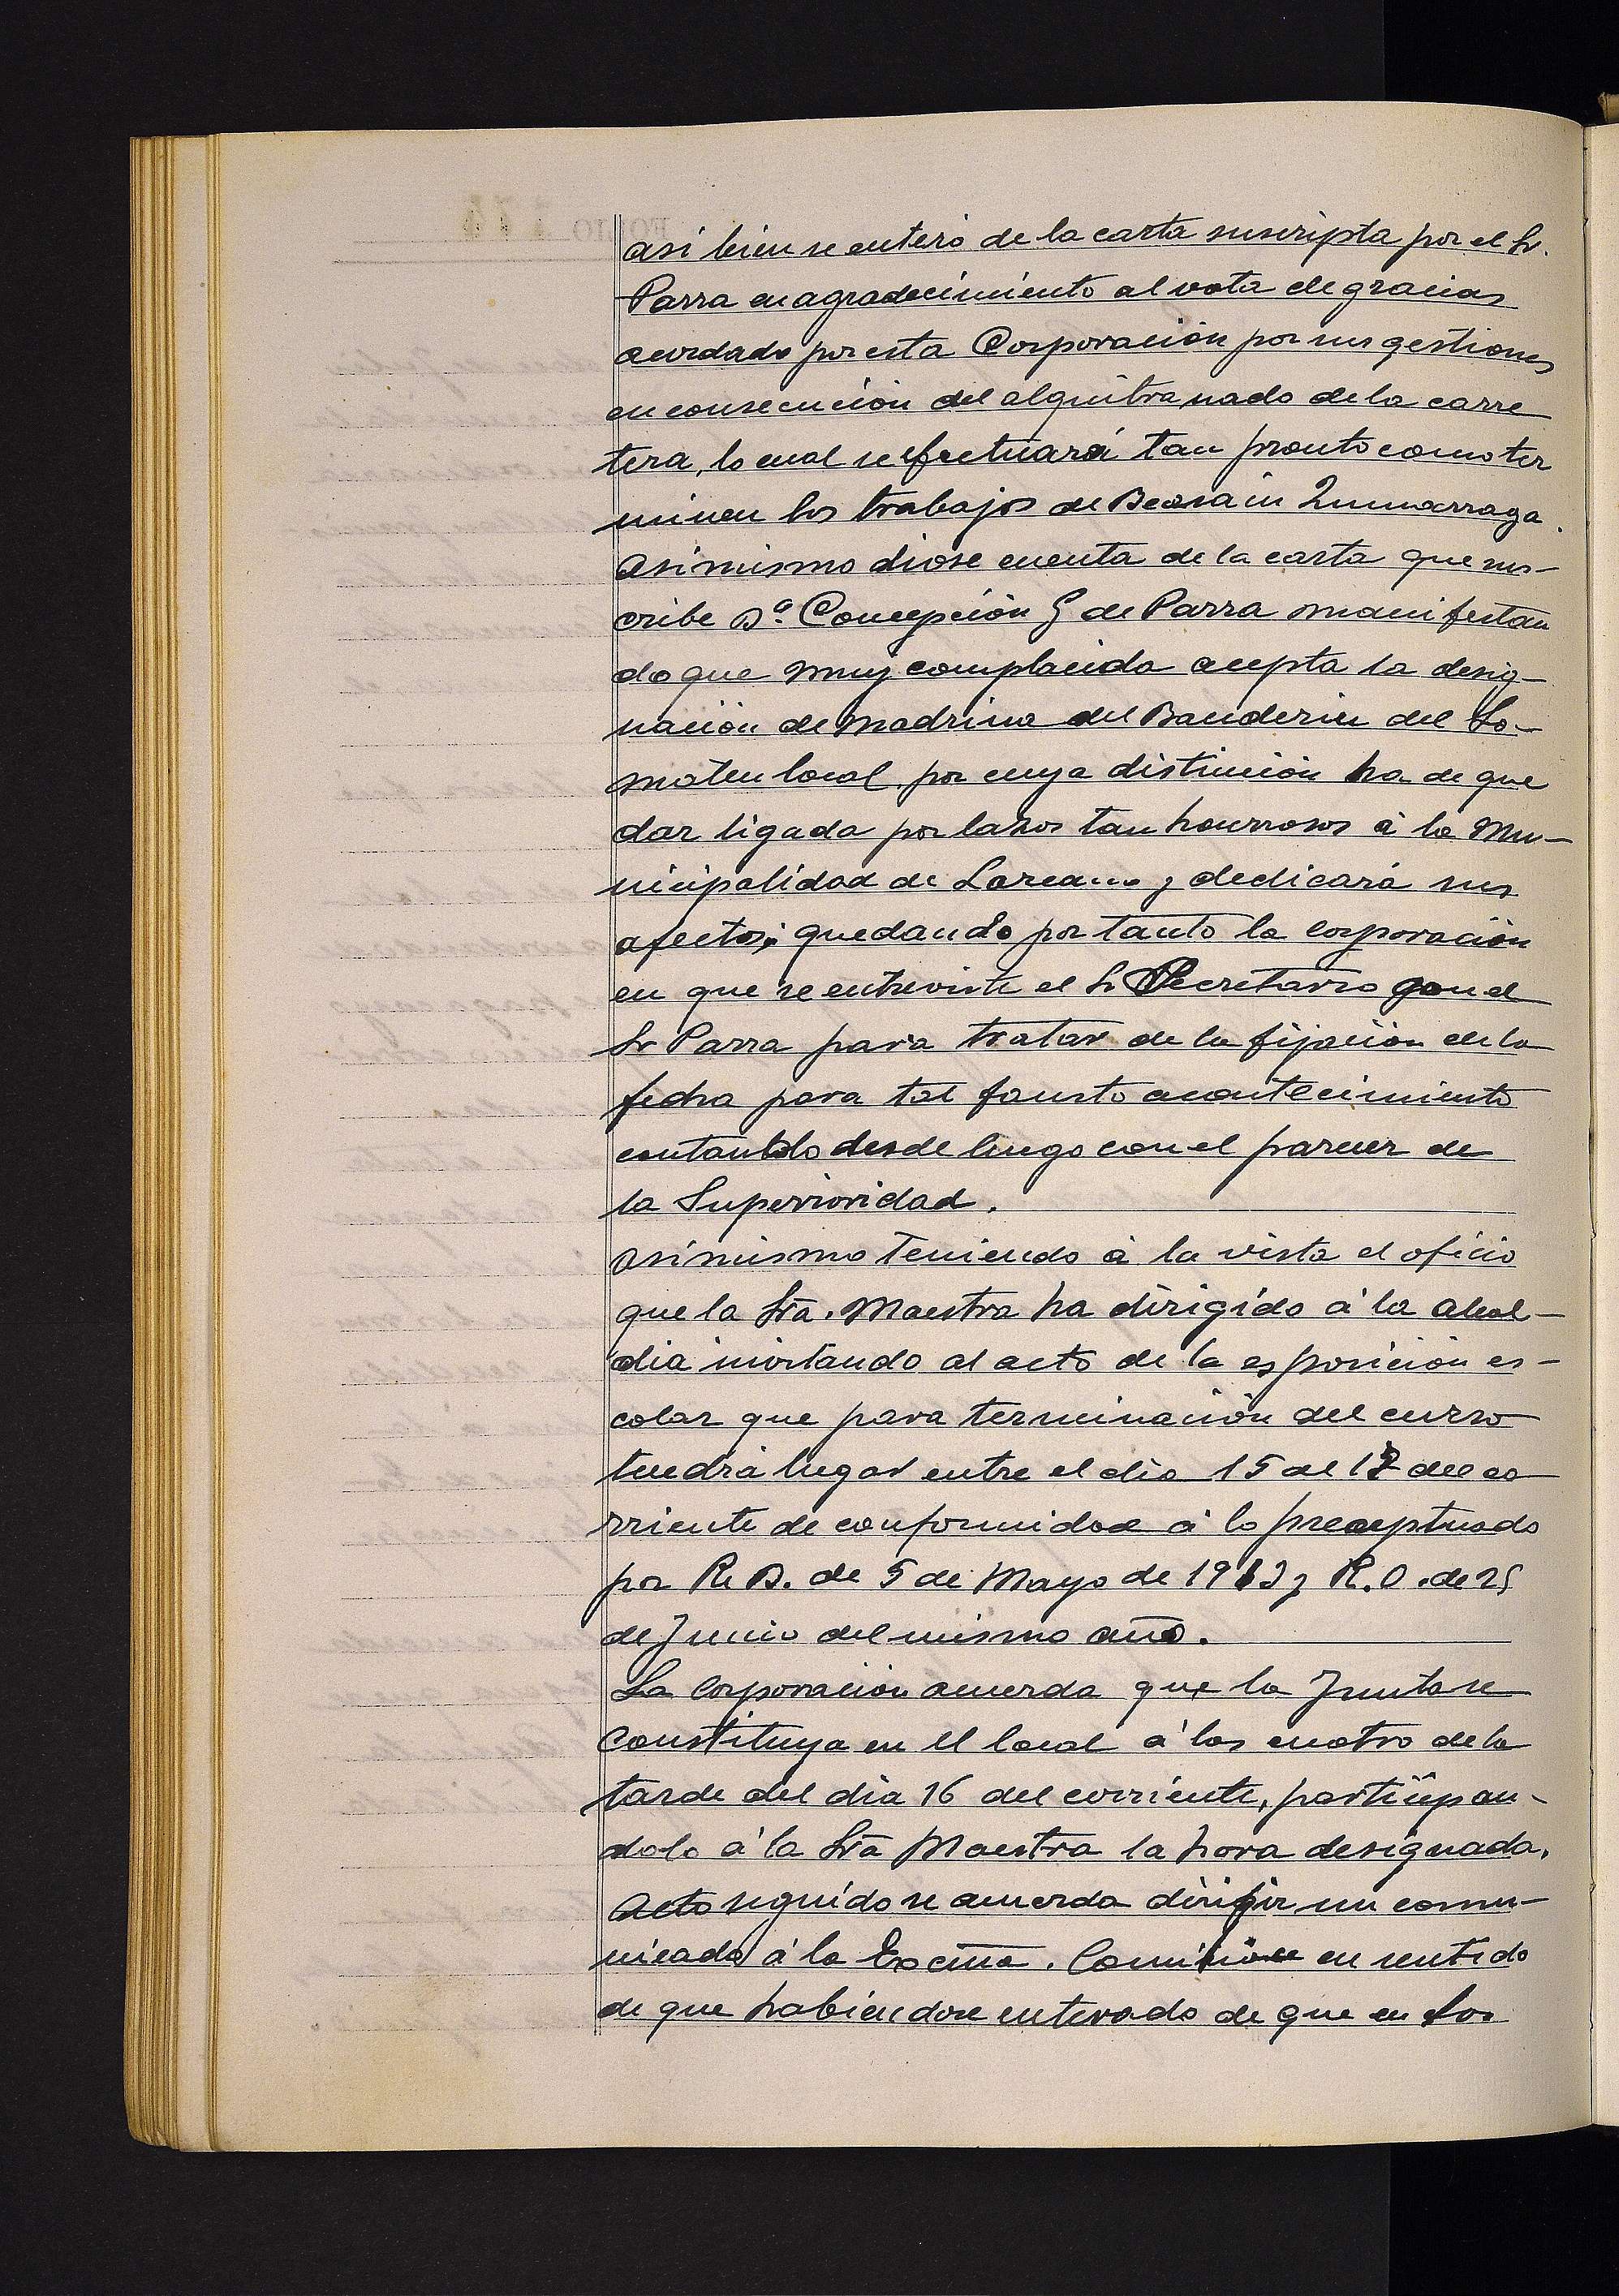 asi bien se enteró de la carta suscripta por el Sr.
Parra en agradecimiento al voto de gracias
acordado por esta Corporación por sus gestiones
en consecución del alquitranado de la carre
tera, lo cual se efectuará tan pronto como ter
minen los trabajos de Beasain Zumarraga.
Asimismo diose cuenta de la carta que sus-
cribe Dª. Concepción G de Parra manifestan
do que muy complacida acepta la desig-
nación de Madrina del Banderin del So-
maten local, por cuya distinción ha de que
dar ligada por lazos tan honrosos á la Mu-
nicipalidad de Lazcano y dedicará sus
afectos; quedando por tanto la corporación
en que se entreviste el Sr Secretario con el
Sr Parra para tratar de la fijación de la
fecha para tal fausto acontecimiento
contando desde luego con el parecer de
la Superioridad.
Asimismo teniendo á la vista el oficio
que la Srã. Maestra ha dirigido á la alcal-
dia invitando al acto de la esposición es-
colar que para terminación del curso
tendrá lugar entre el dia 15 al 17 del co
rriente de conformidad á lo preceptuado
por R. D. de 5 de Mayo de 1913 y R.O. de 25
de Junio del mismo año.
La Corporación acuerda que la Junta se
constituya en el local á las cuatro de la
tarde del dia 16 del corriente, participan-
dolo á la Srã Maestra la hora designada.
Acto seguido se acuerda dirigir un comu-
nicado á la Excma. Comisión en sentido
de que habiendose enterado de que en los